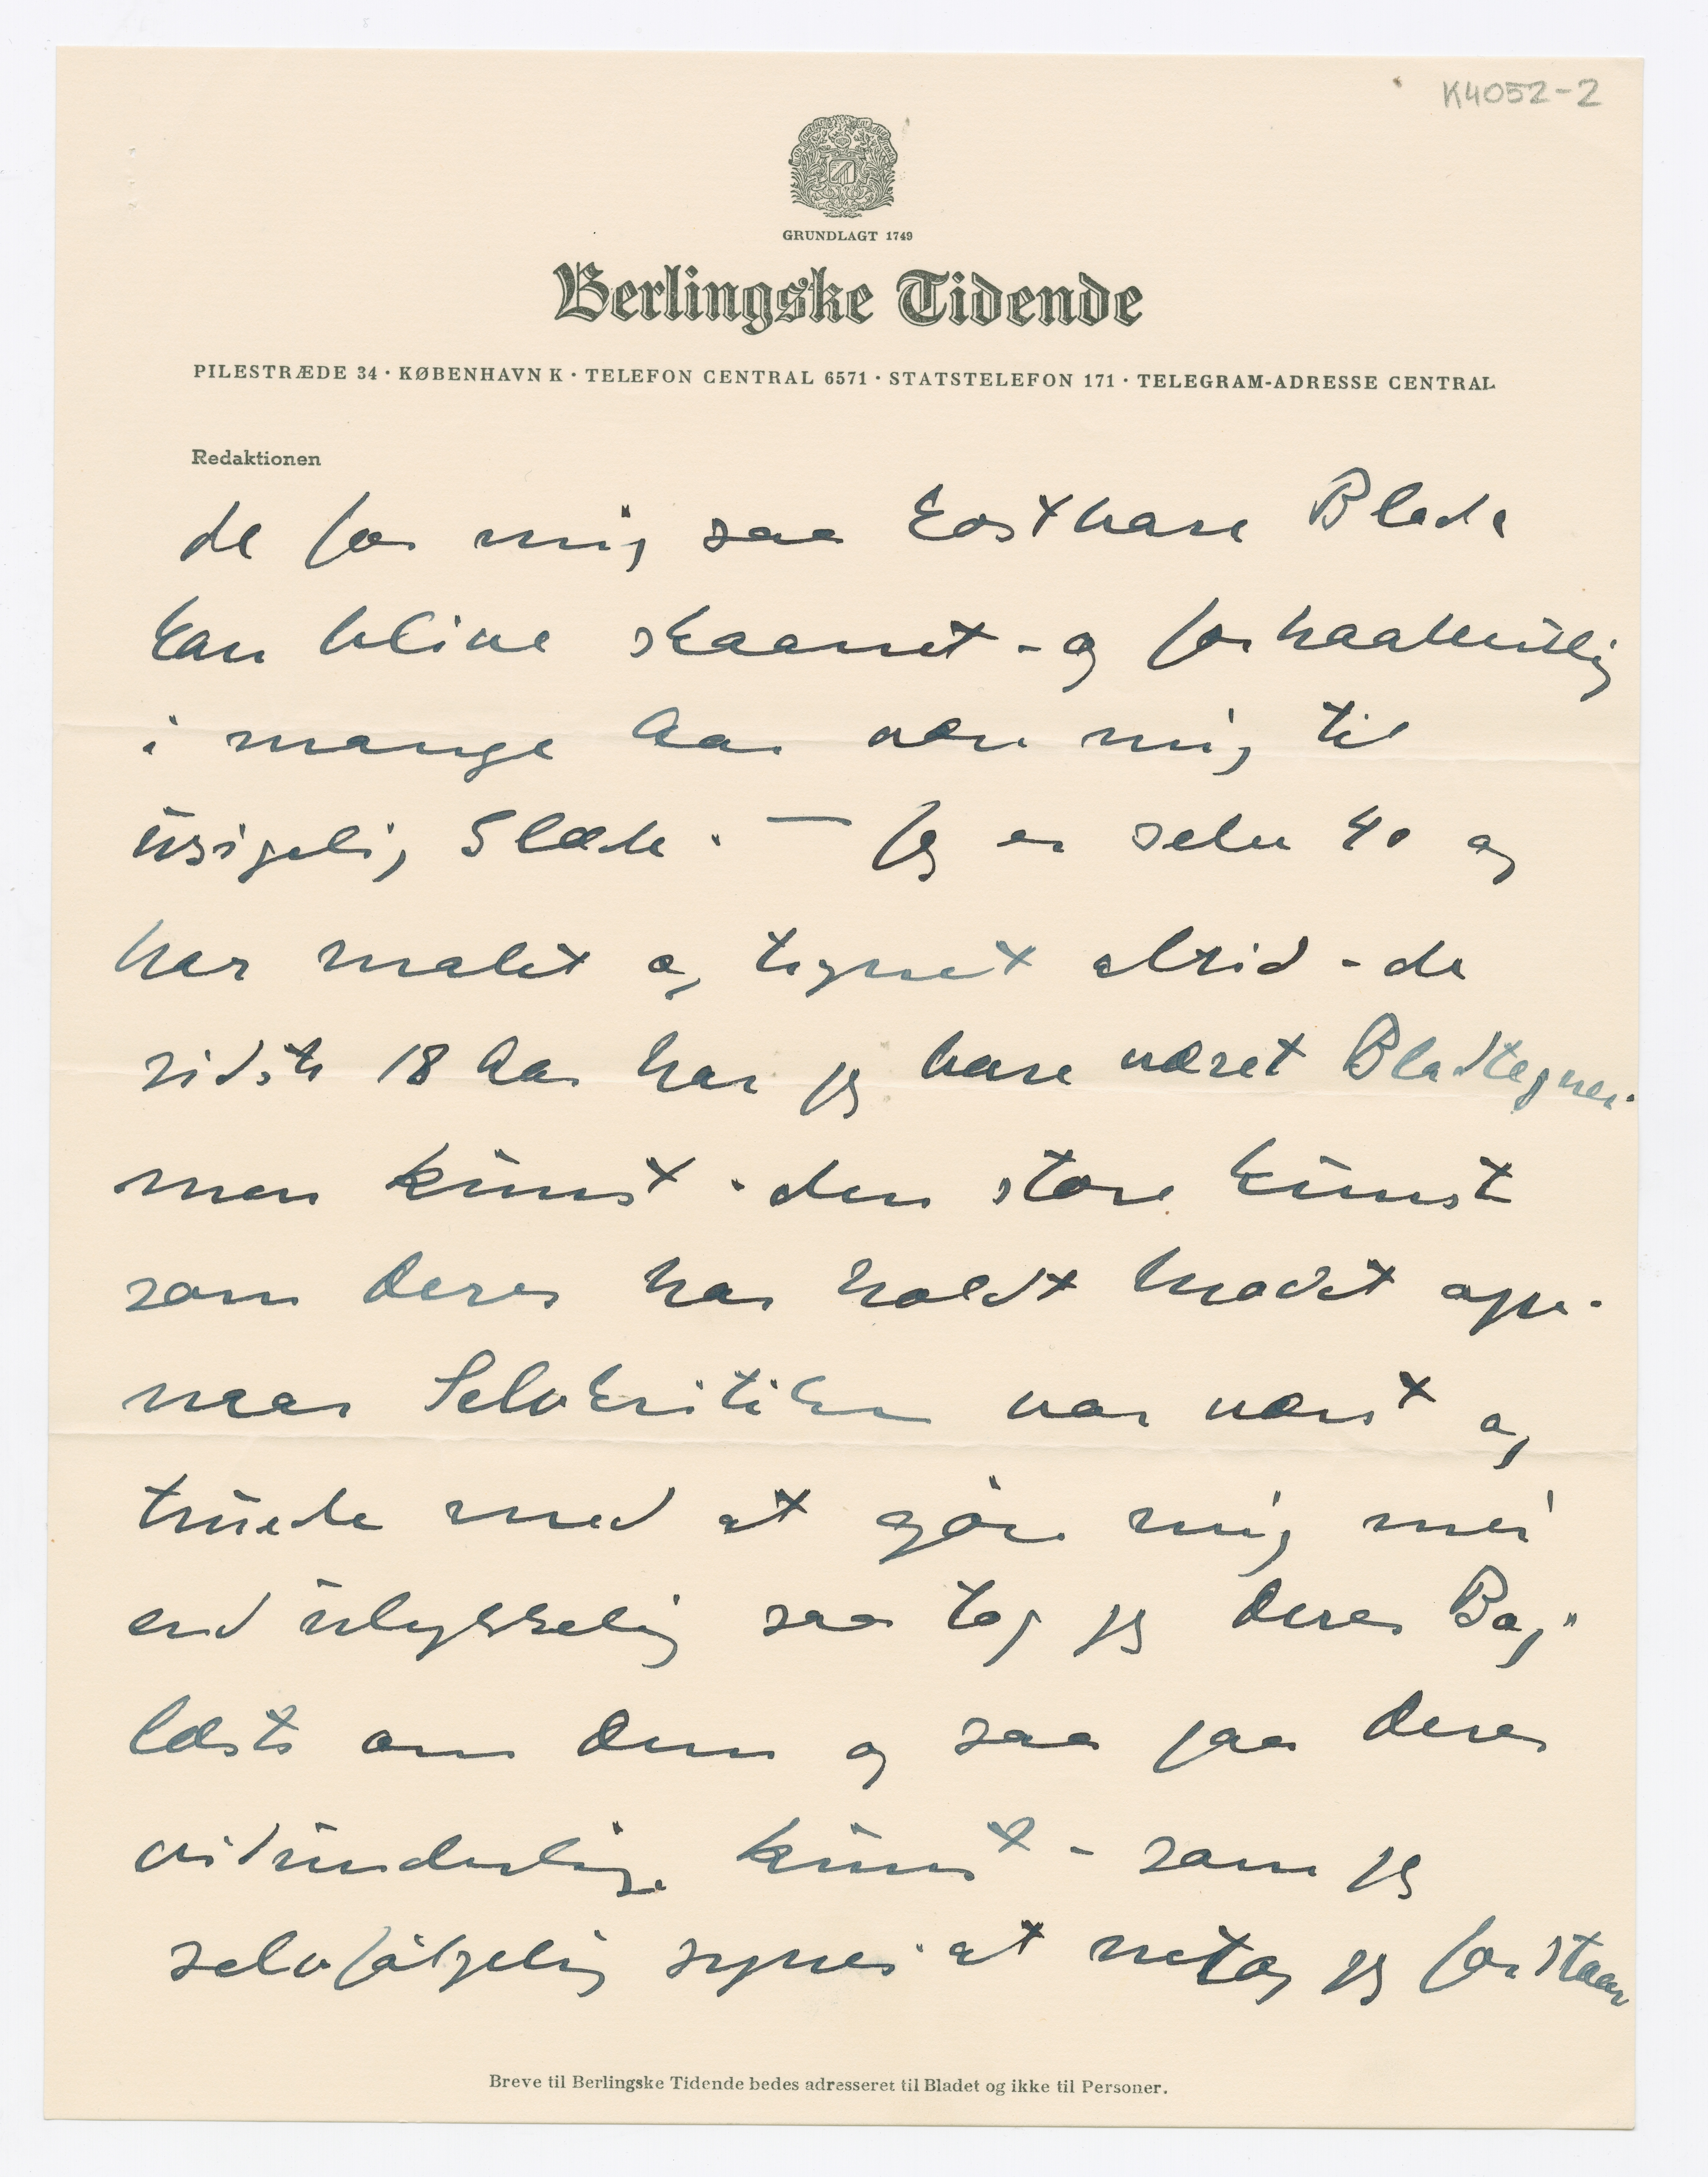 K4052-2
GRUNDLAGT 1749
Berlingske Tidende
PILESTRÆDE 34 · KØBENHAVN K · TELEFON CENTRAL 6571 · STATSTELEFON 171 · TELEGRAM-ADRESSE CENTRAL
Redaktionen
de for mig saa kostbare Blade
kan blive skaanet - og forhaabentlig
i mange Aar være mig til
usigelig Glæde. — Jeg er selv 40 og
har malet og tegnet altid - de
sidste 18 Aar har jeg bare været Bladtegner.
men kunst - den store kunst
som Deres har holdt modet oppe.
naar Selvkritiken var værst og
truede med at gøre mig mer
end ulykkelig saa tog jeg Deres Bog"
læste om Dem og saa paa Deres
vidunderlige kunst - som jeg
selvfølgelig synes at netop jeg forstaar
Breve til Berlingske Tidende bedes adresseret til Bladet og ikke til Personer.